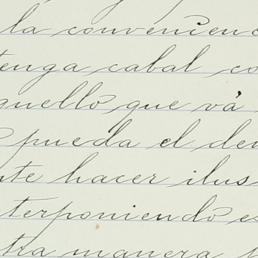 la convenienc
enga cabal co
quello que vá
pueda el den
te hacer ilus
terponiendo e
tra manera